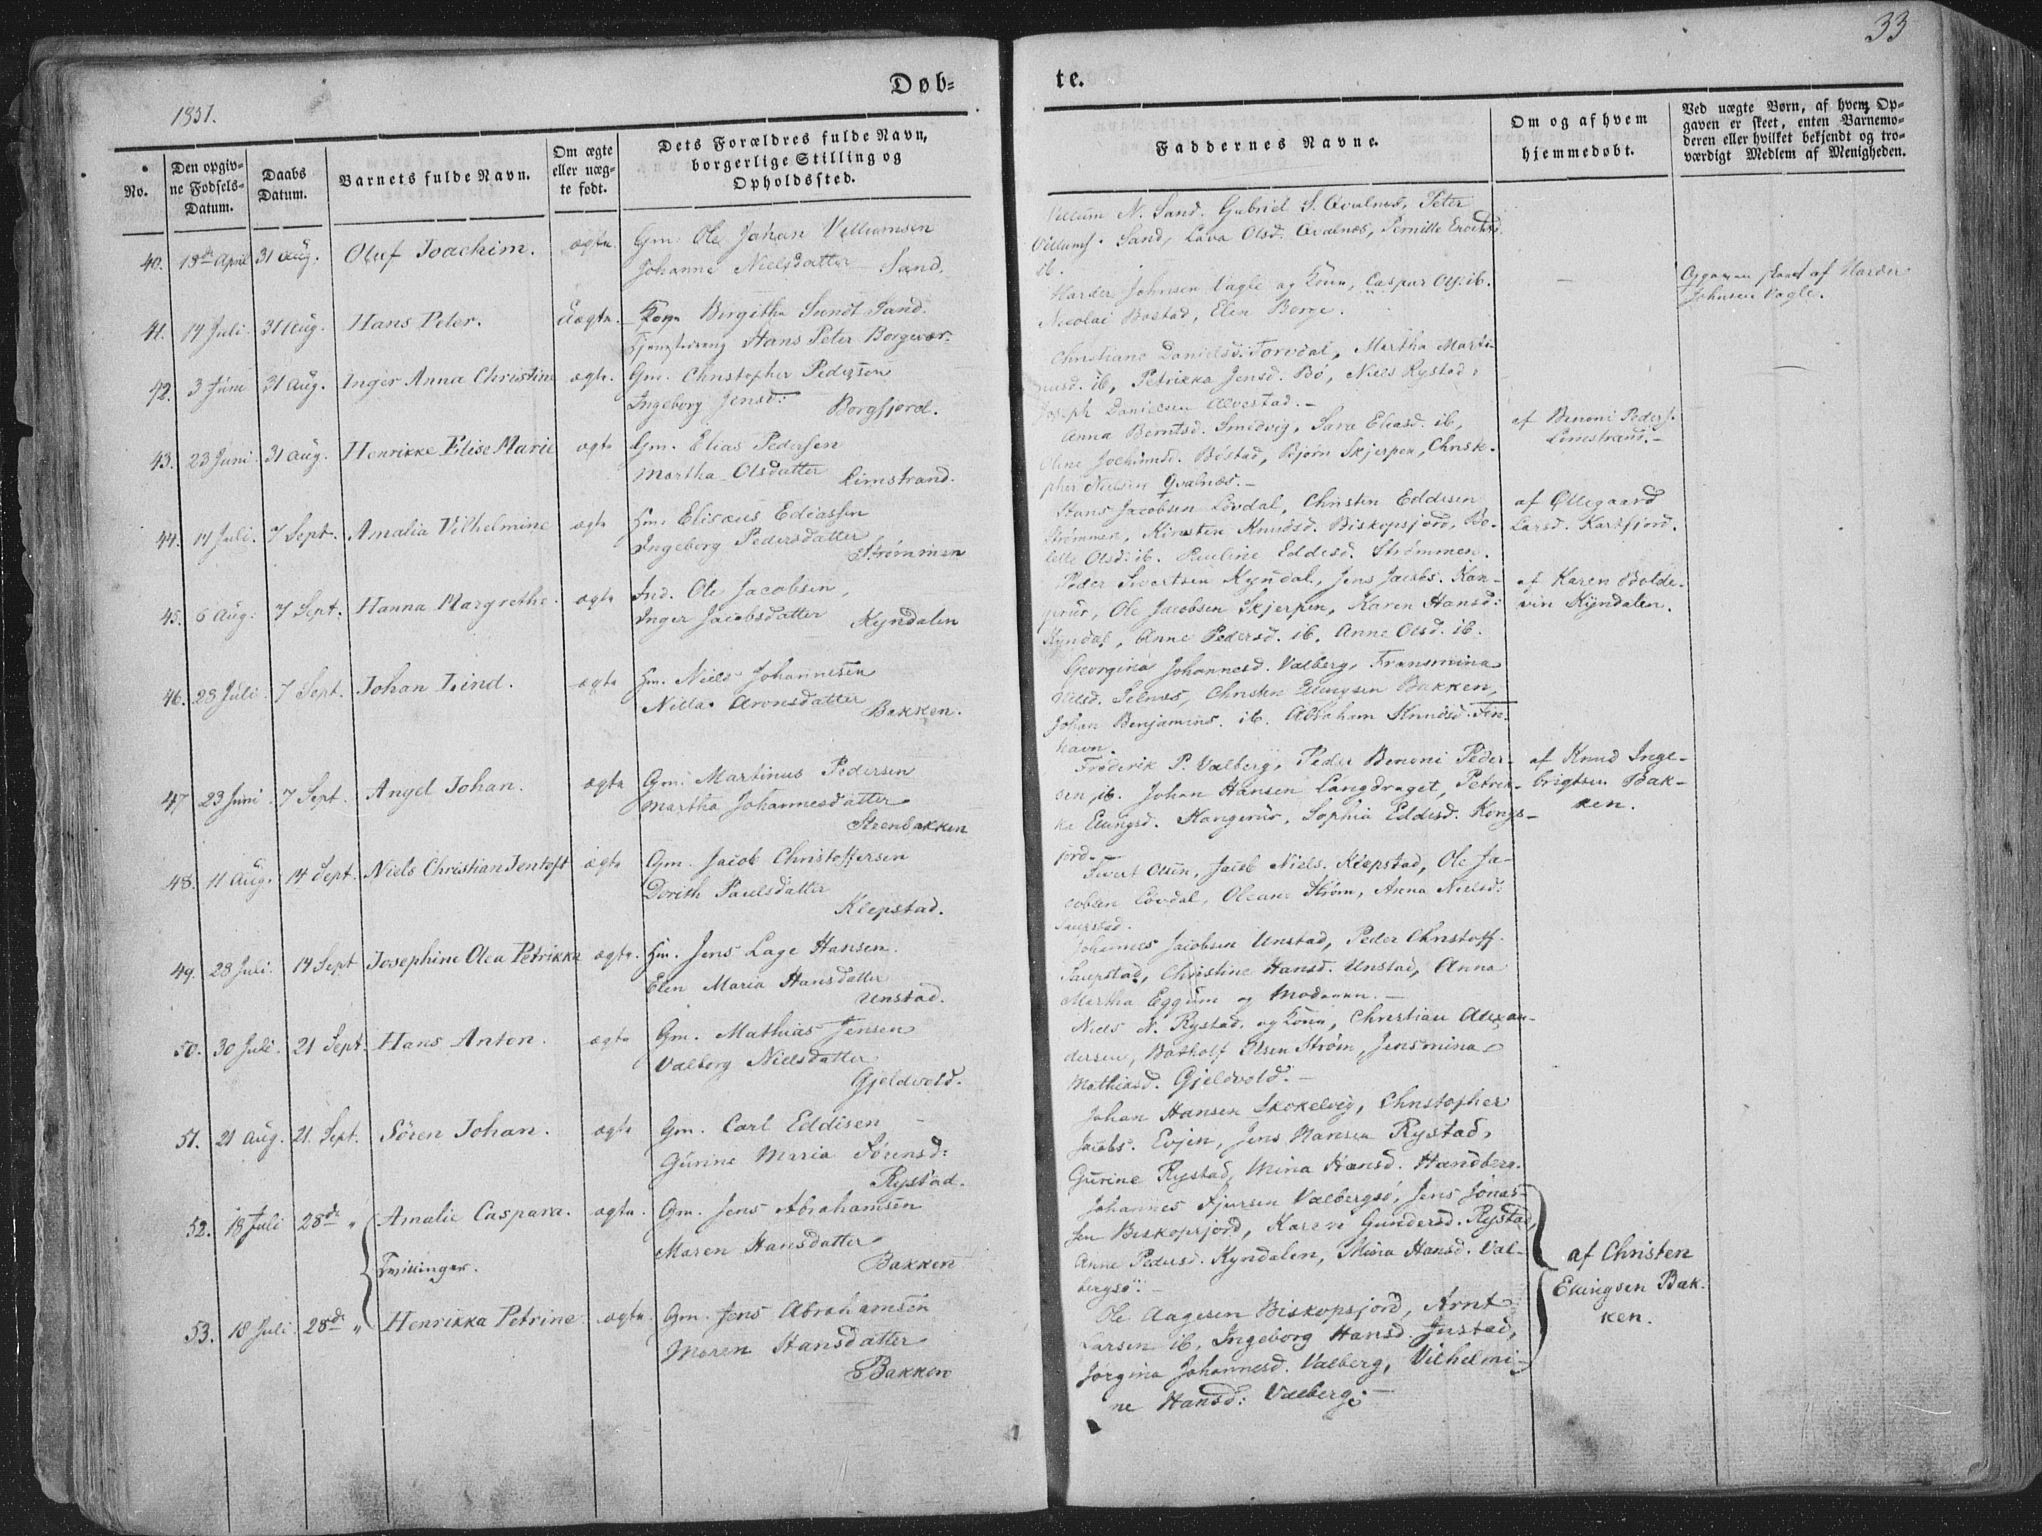 33
Døb=
te.
1851.
No.
Den opgiv=
ne Fødsels=
Datum.
Daabs
Datum.
Barnets fulde Navn.
Om ægte
eller uæg=
te født.
Dets Forældres fulde Navn,
borgerlige Stilling og
Opholdssted.
Faddernes Navne.
Om og af hvem
hjemmedøbt.
Ved uægte Børn, af hvem Op=
gaven er skeet, enten Barnemo=
deren eller hvilket bekjendt og tro=
værdigt Medlem af Menigheden.
40. 18de April 31 Aug. Oluf Joachim. ægte Gm. Ole Johan Villumsen
Johanna Nielsdatter Sand.
Villum N. Sand. Gabriel S. Qvalnes, Peter
Villums. Sand, Lava Olsd. Qvalnæs, Pernille
ib.
41. 14 Juli 31 Aug. Hans Peter. Uægte. Birgitha Sundt Sand.
Hans Peter Borgevær.
Harder Johnsen Vagle og Kone, Caspar ib.
Nicolai Bostad, Elen Borge.
Opgaven skeet af Harder
Johnsen Vagle.
42. 3 Juni 31 Aug. Inger Anna Christine ægte. Gm. Christopher Pedersen
Ingeborg Jensd: Borgfjord.
Christiane Danielsd. Torvdal, Martha Marti-
nusd. ib, Petrikka Jensd. Bø, Niels Rystad,
Joseph Danielsen Alvestad.
43. 23 Juni 31 Aug. Henrikke Elise Marie ægte Gm. Elias Pedersen
Martha Olsdatter Limstrand.
Anna Berntsd. Smedvig, Sara Eliasd. ib,
Oline Jochumsd. Bostad, Bjørn Skjerpen, Christo-
pher Nielsen Qvalnæs.
af Benoni Peders.
Limstrand.
44. 14 Juli. 7 Sept. Amalia Vilhelmine ægte Gm. Elisæus Ediassen
Ingeborg Pedersdatter
Strømmen
Hans Jacobsen Løvdal, Christen Eddisen
Strømmen, Kirsten Knudsd. Biskopsjord, Bo-
lette Olsd. ib. Pauline Eddisd. Strømmen.
af Ollegaard
Larsd. Kartfjord.
45. 6 Aug. 7 Sept. Hanna Margrethe. ægte Ind. Ole Jacobsen,
Inger Jacobsdatter Kyndalen
Peder Sivertsen Kyndal, Jens Jacobs. Kan-
gerur, Ole Jacobsen Skjerpen, Karen Hansd:
Kyndal, Anne Pedersd. ib. Anne Olsd. ib.
af Karen Bolde-
vin Kyndalen.
46. 28 Juli 7 Sept. Johan Lind. ægte Gm. Niels Johannesen
Nilla Aronsdatter
Bakken.
Georgina Johannesd. Valberg, Fransmina
Nilsd. Selnæs, Christen Ellingsen Bakken,
Johan Benjamins. ib. Abraham Knudsd. Fin-
havn.
47. 23 Juni 7 Sept. Angel Johan. ægte Gm. Martinus Pedersen
Martha Johannesdatter
Steenbakken
Frederik P. Valberg, Peder Benoni Peder-
sen, ib. Johan Hansen Langdraget, Petrik-
ka Ellingsd. Kangerur, Sophia Eddisd. Kongs-
jord.
af Knud Inge-
brigtsen Bak-
ken.
48. 11 Aug. 14 Sept. Niels Christian Jentoft ægte Gm. Jacob Christoffersen
Dorith Paulsdatter
Klepstad.
Sivert Olsen, Jacob Niels. Klepstad, Ole Ja-
cobsen Løvdal, Oleane Strøm, Anna Nielsd:
Saupstad.
49. 28 Juli. 14 Sept Josephine Olea Petrikka ægte. Gm. Jens Lage Hansen.
Elen Maria Hansdatter
Unstad.
Johannes Jacobsen Unstad, Peder Christoff.
Saupstad, Christine Hansd. Unstad, Anna
Martha Eggum og Moderen.
50. 30 Juli. 21 Sept. Hans Anton. ægte Gm. Mathias Jensen
Valborg Nielsdatter
Gjeldvold.
Niels N. Rystad. og Kone, Christian Alexan-
dersen, Botholf Olsen Strøm, Jensmina
Mathiasd. Gjeldvold.
51. 21 Aug. 21. Sept. Søren Johan. ægte Gm. Carl Eddisen
Gurine Maria Sørensd:
Rystad.
Johan Hansen Skokelvig, Christopher
Jacobs. Evjen, Jens Hansen Rystad,
Gurine Rystad, Mina Hansd. Handberg.
52. 18 Juli 28de " Amalie Caspara. ægte. Gm. Jens Abrahamsen
Maren Hansdatter
Bakken
Tvillinger.
Johannes Sjursen Valbergsø, Jens Jonas-
sen Biskopsjord, Karen Gundersd. Rystad,
Anne Pedersd. Kyndalen, Mina Hansd. Val-
bergsø.
af Christen
Ellingsen Bak-
ken.
53. 18 Juli 28de " Henrikka Petrine. ægte. Gm. Jens Abrahamsen
Maren Hansdatter
Bakken
Ole Aagesen Biskopsjord, Arnt
Larsen ib, Ingeborg Hansd. Justad,
Jørgina Johannesd. Valberg, Vilhelmi-
ne Hansd: Valberg.